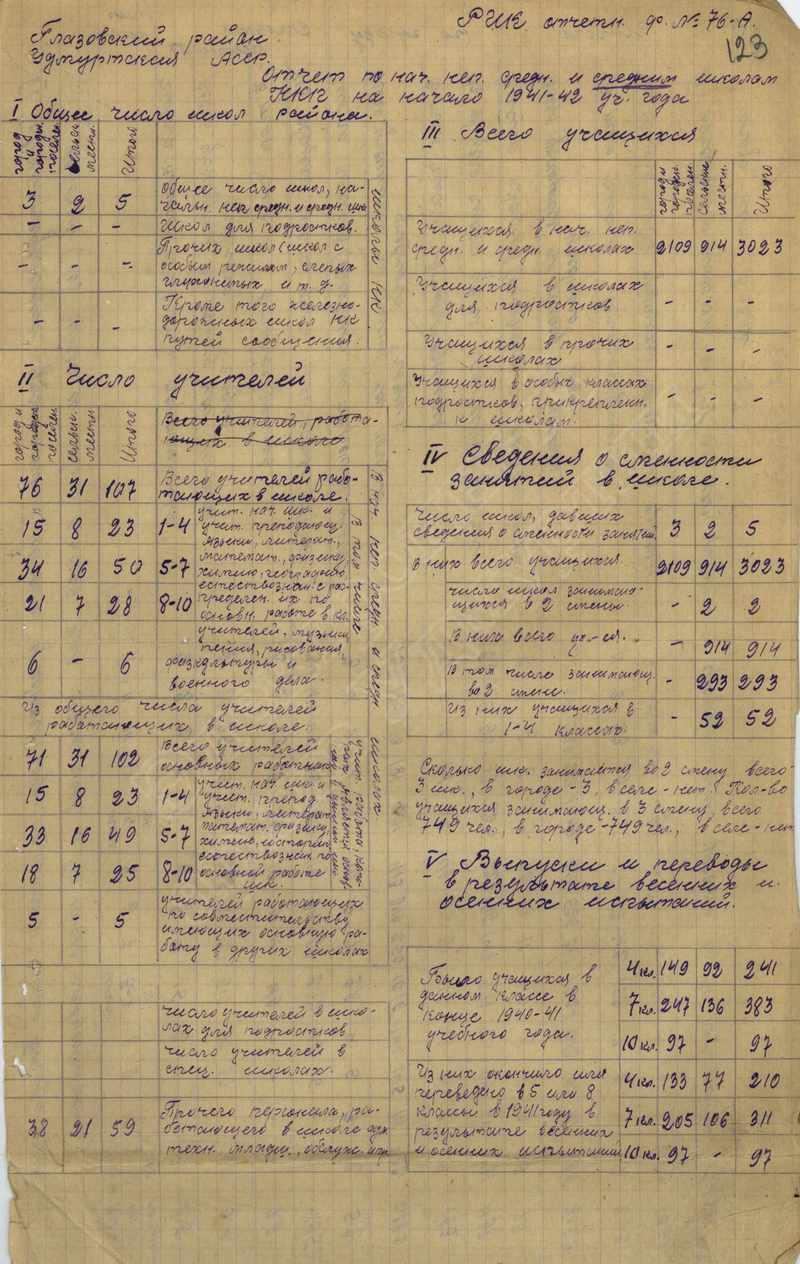 РИК отчетн. ф. № 76-А.
123
Глазовский район
Удмуртския Асср.
Отчет по нач. неп. средн. и средним школам
НКП на начало 1941-42 уч. года
I Общее число школ района.
город и городск. поселен.
сельск. местн.
Итого
3 2 5 Общее число школ, на-
чальн. неп средн. и средн. шк.
- - - Школ для подростков.
- - - Прочих школ (школ с
особым режимом, слепых
глухонемых и т. д.
- - - Кроме того железно-
дорожных школ НК
путей сообщения.
школы НК
II Число учителей
город и городск. поселен.
сельск. местн.
Итого
Всего учителей, работа-
ющих в школе
76 31 107 Всего учителей рабо-
тающих в школе.
15 8 23 1-4
34 16 50 5-7
21 7 28 8-10
учит. нач. шк. и
учит. преподающ.
языки, литерат.,
математ., физику,
химию, географию
естествознан. с рас-
пределен. их по
основн. работе в кл.
6 - 6 учителей, музыки
пения, рисования,
физкультуры и
военного дела.
в том числе
Из общего числа учителей
работающих в школе.
71 31 102 Всего учителей
основных работник.
15 8 23 1-4
33 16 49 5-7
18 7 25 8-10
учит. нач. шк. и
учит. препод.
языки, литерат.
математ., физику,
химию, историю
естествознан. по
основной работе
шк.
5 - 5 учителей работающих
по совместительству
имеющих основную ра-
боту в других школах
число учителей в шко-
лах для подростков
число учителей в
спец. школах.
38 21 59 Прочего персонала, ра-
ботающего в школе адм
техн. младш., обслуж. и пр
III Всего учащихся
город и городск. поселен.
сельские местн.
Итого
Учащихся в нач. неп.
средн. и средн. школах 2109 914 3023
Учащихся в школах
для подростков - - -
Учащихся в прочих
школах - - -
Учащихся в особых классах
подростков, прикреплен.
к школам. - - -
IV Сведения о сменности
занятий в школе.
Число школ, давших
сведения о сменности занятий 3 2 5
В них всего учащихся 2109 914 3023
число школ занимаю-
щихся в 2 смены - 2 2
В них всего уч-ся. - 914 914
В том числе занимающ.
во 2 смене. - 293 293
Из них учащихся в
1-4 классах - 52 52
Сколько шк. занимается во 2 смену всего-
3 шк., в городе - 3, в селе - нет. Кол-во
учащихся занимающ. в 3 смену, всего
749 чел., в городе - 749 чел., в селе - нет
V Выпуски и переводы
в результате весенних и
осенних испытаний.
Было учащихся в
данном классе в
конце 1940-41
учебного года.
4 кл. 149 92 241
7 кл. 247 136 383
10 кл. 97 - 97
Из них окончило или
переведено в 5 или 8
классы в 1941 году в
результате весенних
и осенних испытаний
4 кл. 133 77 210
7 кл. 205 106 311
10 кл. 97 - 97